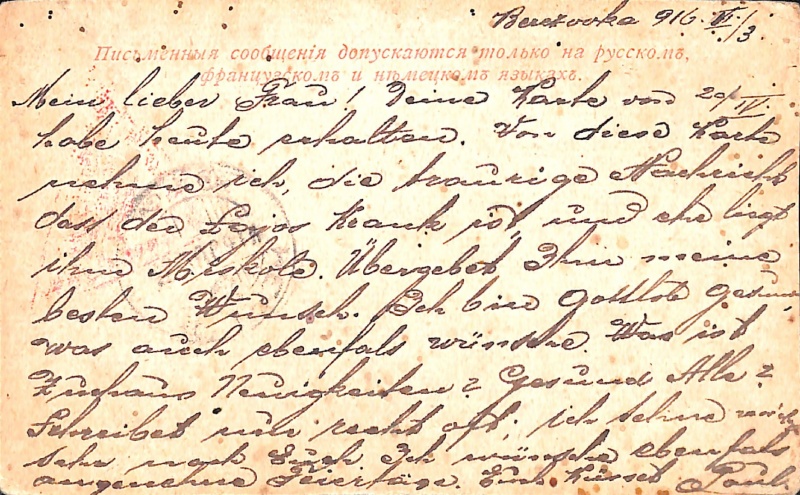 Berezovka 916. VI./3.
Письменныя сообщенія допускаются только на русскомъ,
французскомъ и нѣмецкомъ языкахъ.
Mein lieber Frau! Deine Karte von 20/IV.
habe heute erhalten. Von diese Karte
nehme ich, die traurige Nachricht
dass der Lajos Krank ist, und ehr ligt
ihn Miskolc. Übergebet Ihm meine
besten Wunsch. Ich bin gottlob gesund
was auch ebenfals wünsche. Was ist
Zuhaus Neuigkeiten? Gesund Alle?
Schreibet nur recht oft, ich sehne mich
sehr nach Euch. Ich wünsche ebenfals
angenehme Feiertäge. Euch Küsset Paul.